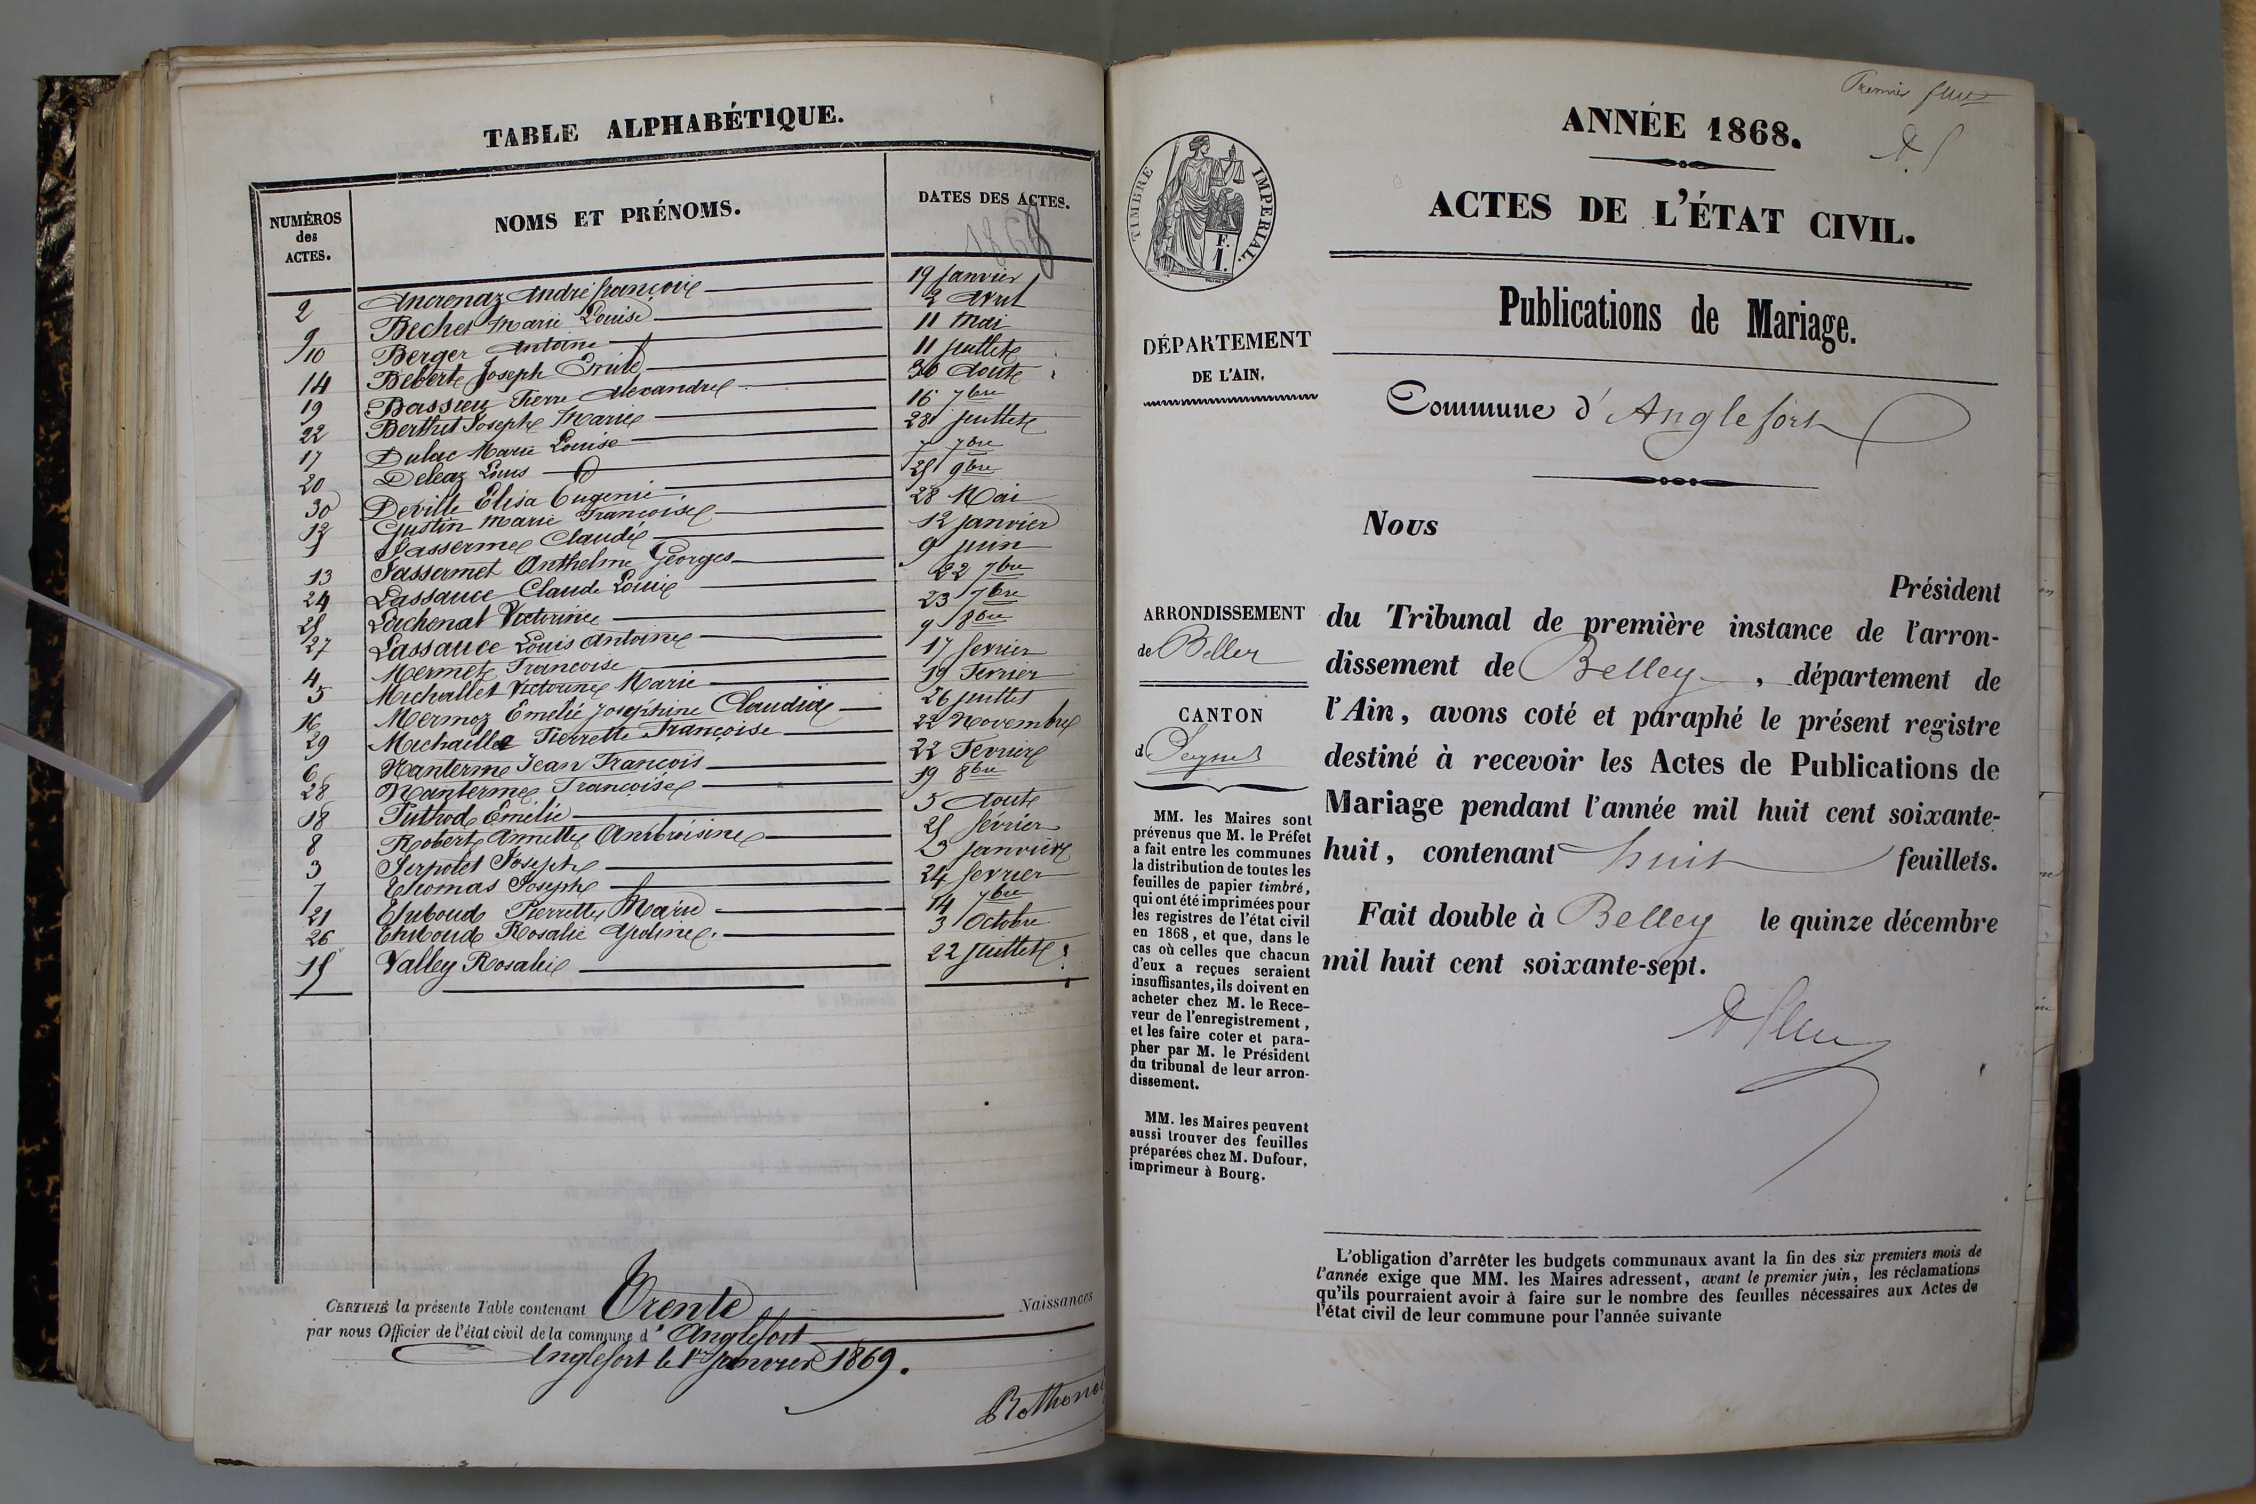 TABLE ALPHABÉTIQUE.
NUMÉROS des ACTES. NOMS ET PRÉNOMS. DATES DES ACTES.
1868
2 André françois 19 Janvier
9 Bechet Marie Louise 2 Avril
10 Berger Antoine 11 Mai
14 Bebert Joseph Emile 11 Juillet
19 Bassieu Pierre Alexandre 30 Aout
22 Berthet Joseph Marie 16 7bre
17 Dulac Marie Louise 28 Juillet
20 Deleaz Louis 7 7bre
30 Deville Elisa Eugenie 25 9bre
12 Gustin Marie Françoise 28 Mai
1 Jassermet Claude 12 janvier
13 Jassermet Anthelme Georges 9 juin
24 Lassauce Claude Louis 22 7bre
25 Lachenal Victorine 23 7bre
27 Lassauce Louis Antoine 9 8bre
4 Mermet Françoise 17 fevrier
5 Michallet Victorine Marie 19 Fevrier
16 Mermoz Emelie Joséphine Claudia 26 juillet
29 Michaille Pierrette Françoise 22 Novembre
6 Nanterme Jean François 22 Fevrier
28 Nanterme Françoise 19 8bre
18 Puthod Emélie 5 Aout
8 Robert Annette Ambroisine 25 février
3 Serpolet Joseph 23 Janvier
7 Thomas Joseph 24 fevrier
21 Thiboud Pierrette Marie 14 7bre
26 Thiboud Rosalie 3 Octobre
15 Valley Rosalie 22 Juillet
CERTIFIÉ la présente Table contenant Trente Naissances
par nous Officier de l'état civil de la commune d' Anglefort
Anglefort le 1er Janvier 1869.
Premier
ANNÉE 1868.
ACTES DE L'ÉTAT CIVIL.
TIMBRE IMPERIAL.
Publications de Mariage.
DÉPARTEMENT
DE L'AIN.
Commune d' Anglefort
Nous
Président
ARRONDISSEMENT
de Belley
CANTON
d Seyssel
du Tribunal de première instance de l'arron-
dissement de Belley, département de
l'Ain, avons coté et paraphé le présent registre
destiné à recevoir les Actes de Publications de
Mariage pendant l'année mil huit cent soixante-
huit, contenant huit feuillets.
Fait double à Belley le quinze décembre
mil huit cent soixante-sept.
MM. les Maires sont
prévenus que M. le Préfet
a fait entre les communes
la distribution de toutes les
feuilles de papier timbré,
qui ont été imprimées pour
les registres de l'état civil
en 1868, et que, dans le
cas où celles que chacun
d'eux a reçues seraient
insuffisantes, ils doivent en
acheter chez M. le Rece-
veur de l'enregistrement,
et les faire coter et para-
pher par M. le Président
du tribunal de leur arron-
dissement.
MM. les Maires peuvent
aussi trouver des feuilles
préparées chez M. Dufour,
imprimeur à Bourg.
L'obligation d'arrêter les budgets communaux avant la fin des six premiers mois de
l'année exige que MM. les Maires adressent, avant le premier juin, les réclamations
qu'ils pourraient avoir à faire sur le nombre des feuilles nécessaires aux Actes de
l'état civil de leur commune pour l'année suivante